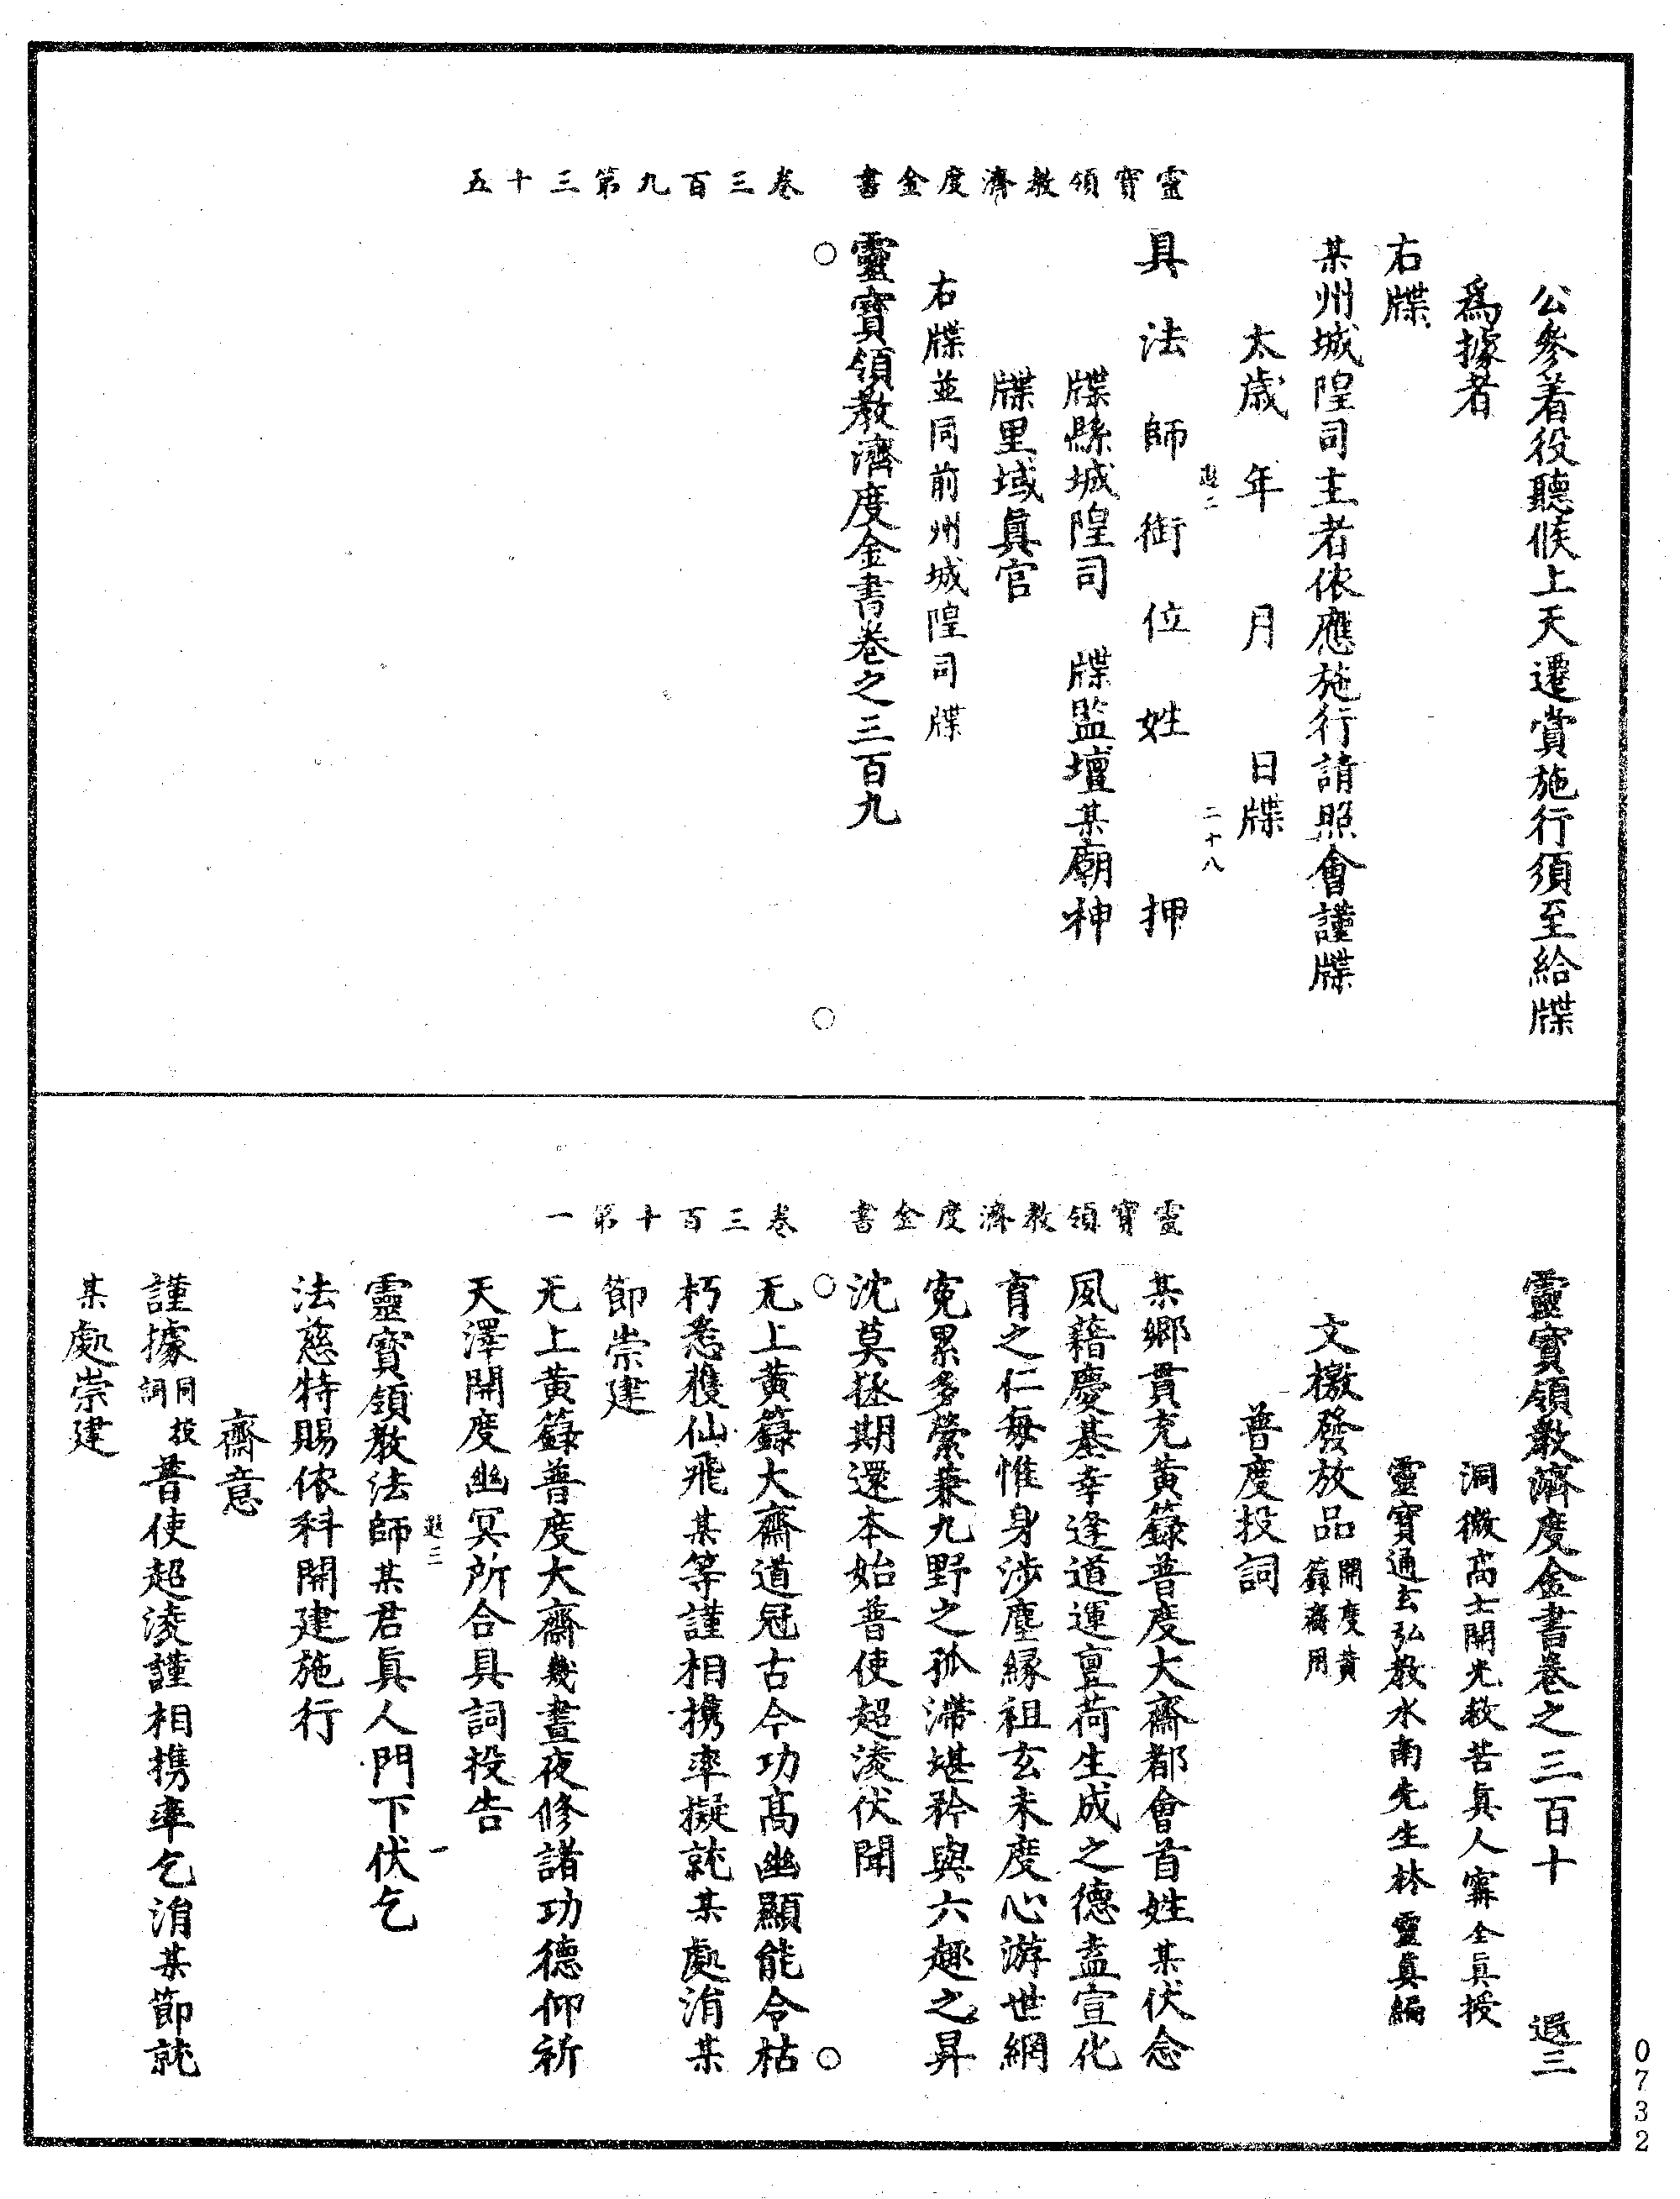 靈寶領教濟度金書　卷三百九第三十五
公參着役聽候上天遷賞施行須至給牒
爲據者
右牒
某州城隍司主者依應施行請照會謹牒
太歲　年　月　日牒
二十八
具法師銜位姓　押
牒縣城隍司　牒監壇某廟神
牒里域眞官
右牒並同前州城隍司牒
靈寶領教濟度金書卷之三百九
靈寶領教濟度金書　卷三百十第一
靈寶領教濟度金書卷之三百十　　退三
洞微高士開光救苦眞人甯全眞授
靈寶通玄弘教水南先生林靈眞編
文檄發放品開度黃籙齋用
普度投詞
某鄉貫充黃籙普度大齋都會首姓某伏念
夙藉慶基幸逢道運亶荷生成之德盍宣化
育之仁每惟身涉塵緣祖玄未度心游世網
寃累多縈兼九野之孤滯堪矜與六趣之昇
沈莫拯期還本始普使超淩伏聞
无上黃籙大齋道冠古今功高幽顯能令枯
朽悉獲仙飛某等謹相携率擬就某處涓某
節崇建
无上黃籙普度大齋幾晝夜修諸功德仰祈
天澤開度幽冥所合具詞投告
一
靈寶領教法師某君眞人門下伏乞
法慈特賜依科開建施行
齋意
謹據同投詞普使超淩謹相携率乞涓某節就
某處崇建
0732